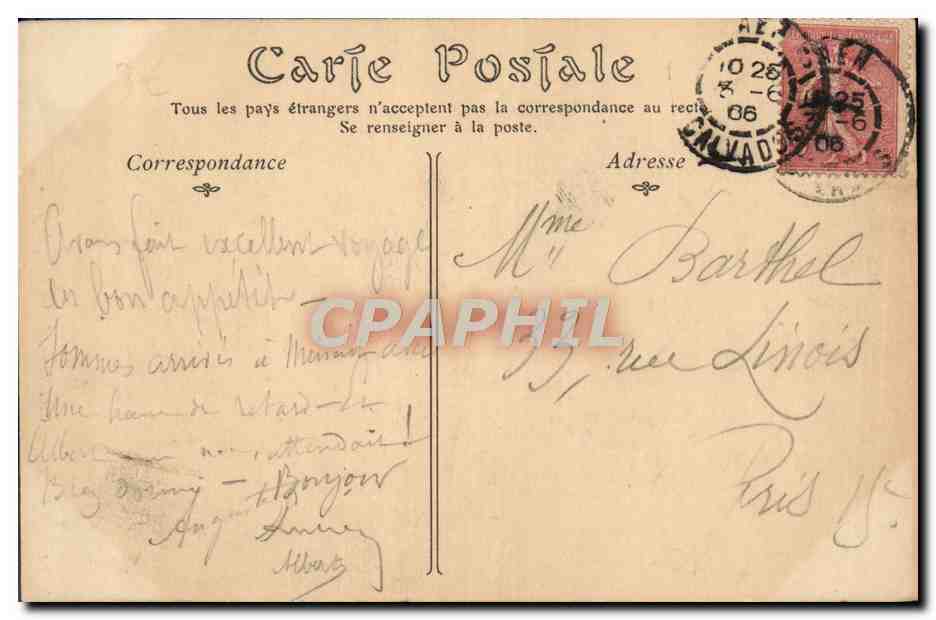 Carte Postale
Tous les pays étrangers n'acceptent pas la correspondance au recto
Se renseigner à la poste.
Correspondance
Adresse
CAEN
10 25
3 -6
06
CALVADOS
CAEN
10 25
3 -6
06
Avons fait excellent voyage
bon appétit -
Sommes arrivés à avec
Une heure de retard - et
Albert attendait !
Bien dormi - Bonjour
Auguste
Albert
Mme Barthel
33, rue Linois
Paris 15e
CPAPHIL